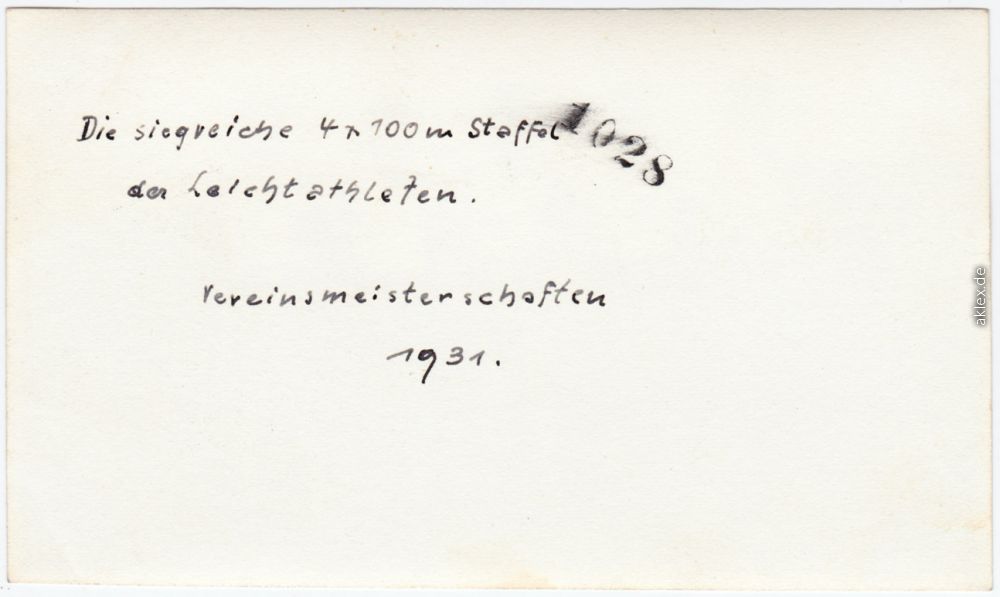 Die siegreiche 4x100m Staffel
1028
der Leichtathleten.
Vereinsmeisterschaften
1931.
aklex.de